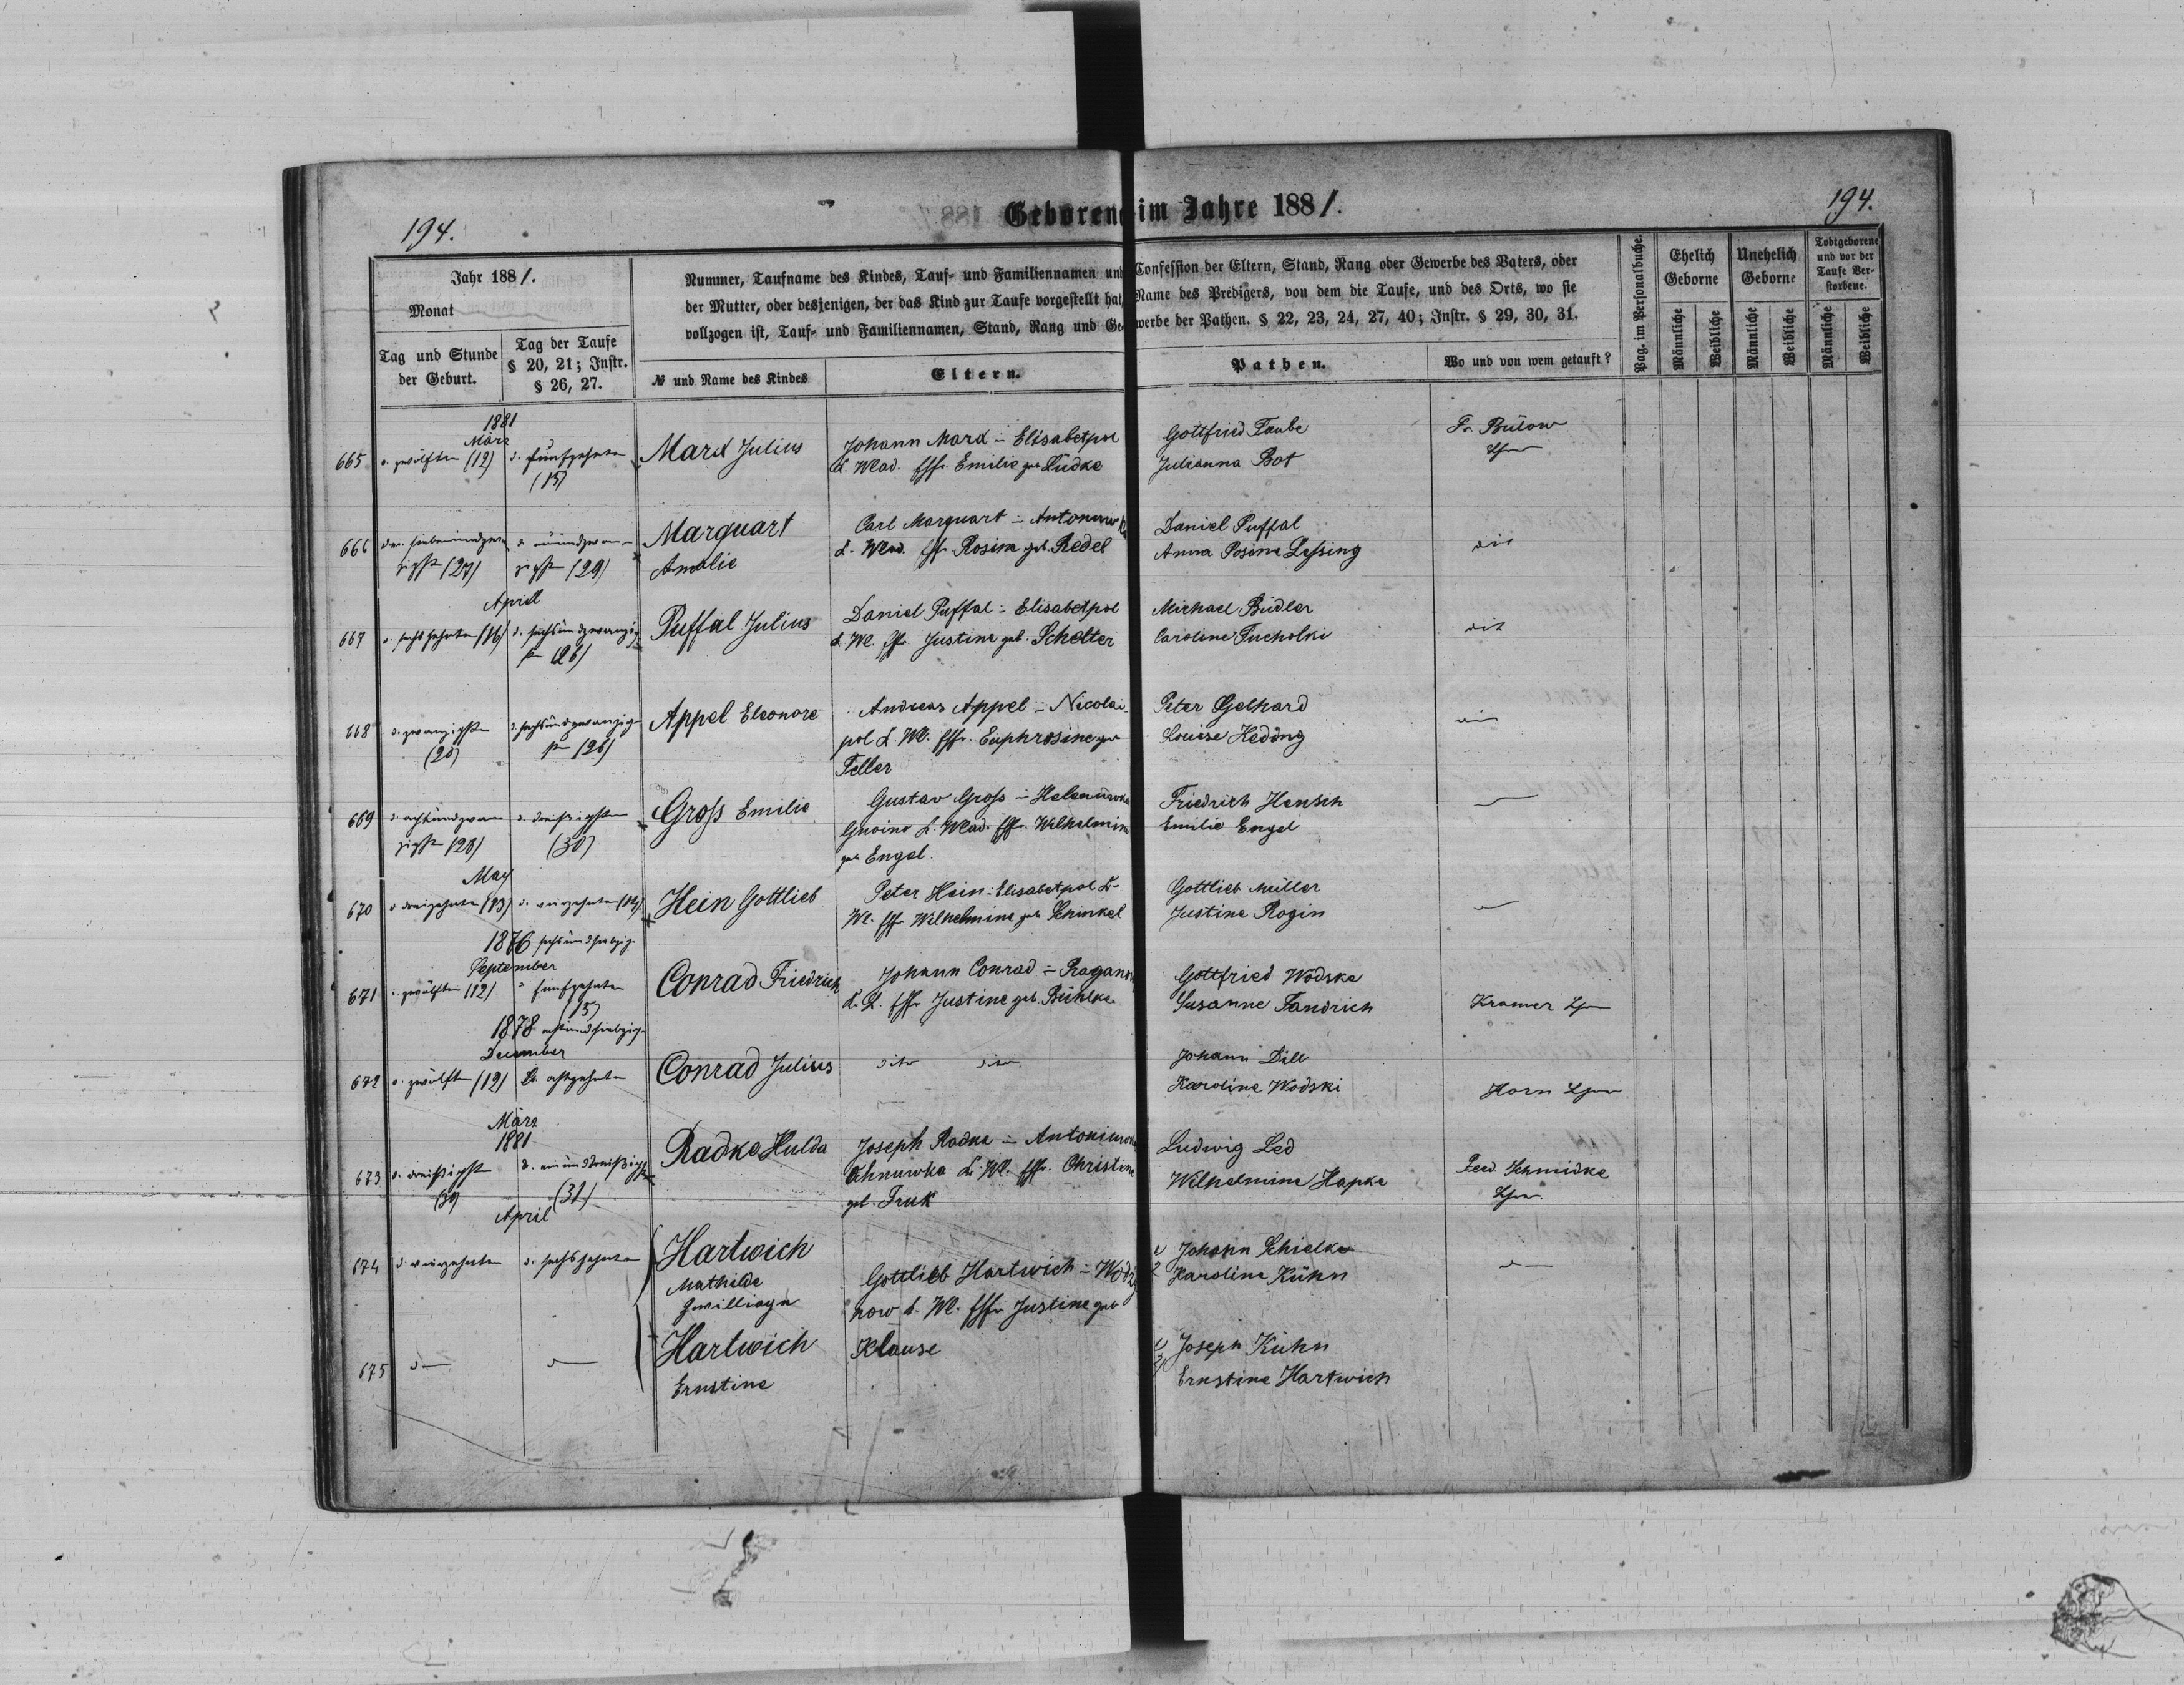 194.
Geboren im Jahre 1881.
194.
Jahr 1881.
Monat
Tag und Stunde der Geburt.
Tag der Taufe § 20, 21; Instr. § 26, 27.
Nummer, Taufname des Kindes, Tauf- und Familiennamen und Confession der Eltern, Stand, Rang oder Gewerbe des Vaters, oder
der Mutter, oder desjenigen, der das Kind zur Taufe vorgestellt hat, Name des Predigers, von dem die Taufe, und des Orts, wo sie
vollzogen ist, Tauf- und Familiennamen, Stand, Rang und Gewerbe der Pathen. § 22, 23, 24, 27, 40; Instr. § 29, 30, 31.
№ und Name des Kindes
Eltern.
Pathen.
Wo und von wem getauft?
Pag. im Personalbuche.
Ehelich Geborne
Unehelich Geborne
Todtgeborene und vor der Taufe Verstorbene.
Männliche
Weibliche
Männliche
Weibliche
Männliche
Weibliche
1881
März
665 d. zwölften (12) d. fünfzehnten (15)
Marx Julius
Johann Marx - Elisabetpol
K. Wlad. Ehfr. Emilie geb. Lüdke
Gottfried Taube
Julianna Bot
Fr. Bülow
666 den siebenundzwanzigsten (27) (29)
Marquart
Amalie
Carl Marquart - Antonuwka
K. Wlad. Ehfr. Rosine geb. Redel
Daniel Puffal
Anna Rosine Lessing
dit
April
667 d. sechszehnten (16) d. sechsundzwanzigsten (26)
Puffal Julius
Daniel Puffal - Elisabetpol
K. Wl. Ehfr. Justine geb. Schelter
Michael Büdler
Caroline Tucholki
dit
668 d. zwanzigsten (20) d. sechsundzwanzigsten (26)
Appel Eleonore
Andreas Appel - Nicolai-
pol K. Wl. Ehfr. Euphrosine geb
Feller
Peter Gelhard
Louise Heding
669 d. achtundzwanzigsten (28) d. dreißigsten (30)
Gross Emilie
Gustav Gross - Helenuwka
Gnoino K. Wlad. Ehfr. Wilhelmine
geb Engel.
Friedrich Hensch
Emilie Engel
May
670 d. dreizehnten (13) d. vierzehnten (14)
Hein Gottlieb
Peter Hein - Elisabetpol K.
Wl. Ehfr Wilhelmine geb Schinkel
Gottlieb Müller
Justine Rogin
1876 sechsundsiebzig
September
671 d. zwölften (12) d. fünfzehnten (15)
Conrad Friedrich
Johann Conrad -
K. L. Ehfr Justine geb. Rühlke
Gottfried Wodske
Susanne Fandrich
Kramer
1878 achtundsiebzig
December
672 d. zwölften (12) d. achtzehnten
Conrad Julius
dito dito
Johann Dill
Karoline Wodski
Horn
März
1881
673 d. dreißigsten (30) d. einunddreißigsten (31)
Radke Hulda
Joseph Radke - Antoniuwka
K. Wl. Ehfr. Christine
geb. Truk
Ludwig Led
Wilhelmine Hapke
Ferd. Schmidke
April
674 d. vierzehnten d. sechszehnten
Hartwich
Mathilde
Gottlieb Hartwich -
now K. Wl. Ehfr Justine geb
Klause
1) Johann Schielke
2 Karoline Kühn
675
Hartwich
Ernstine
1) Joseph Kühn
2) Ernstine Hartwich